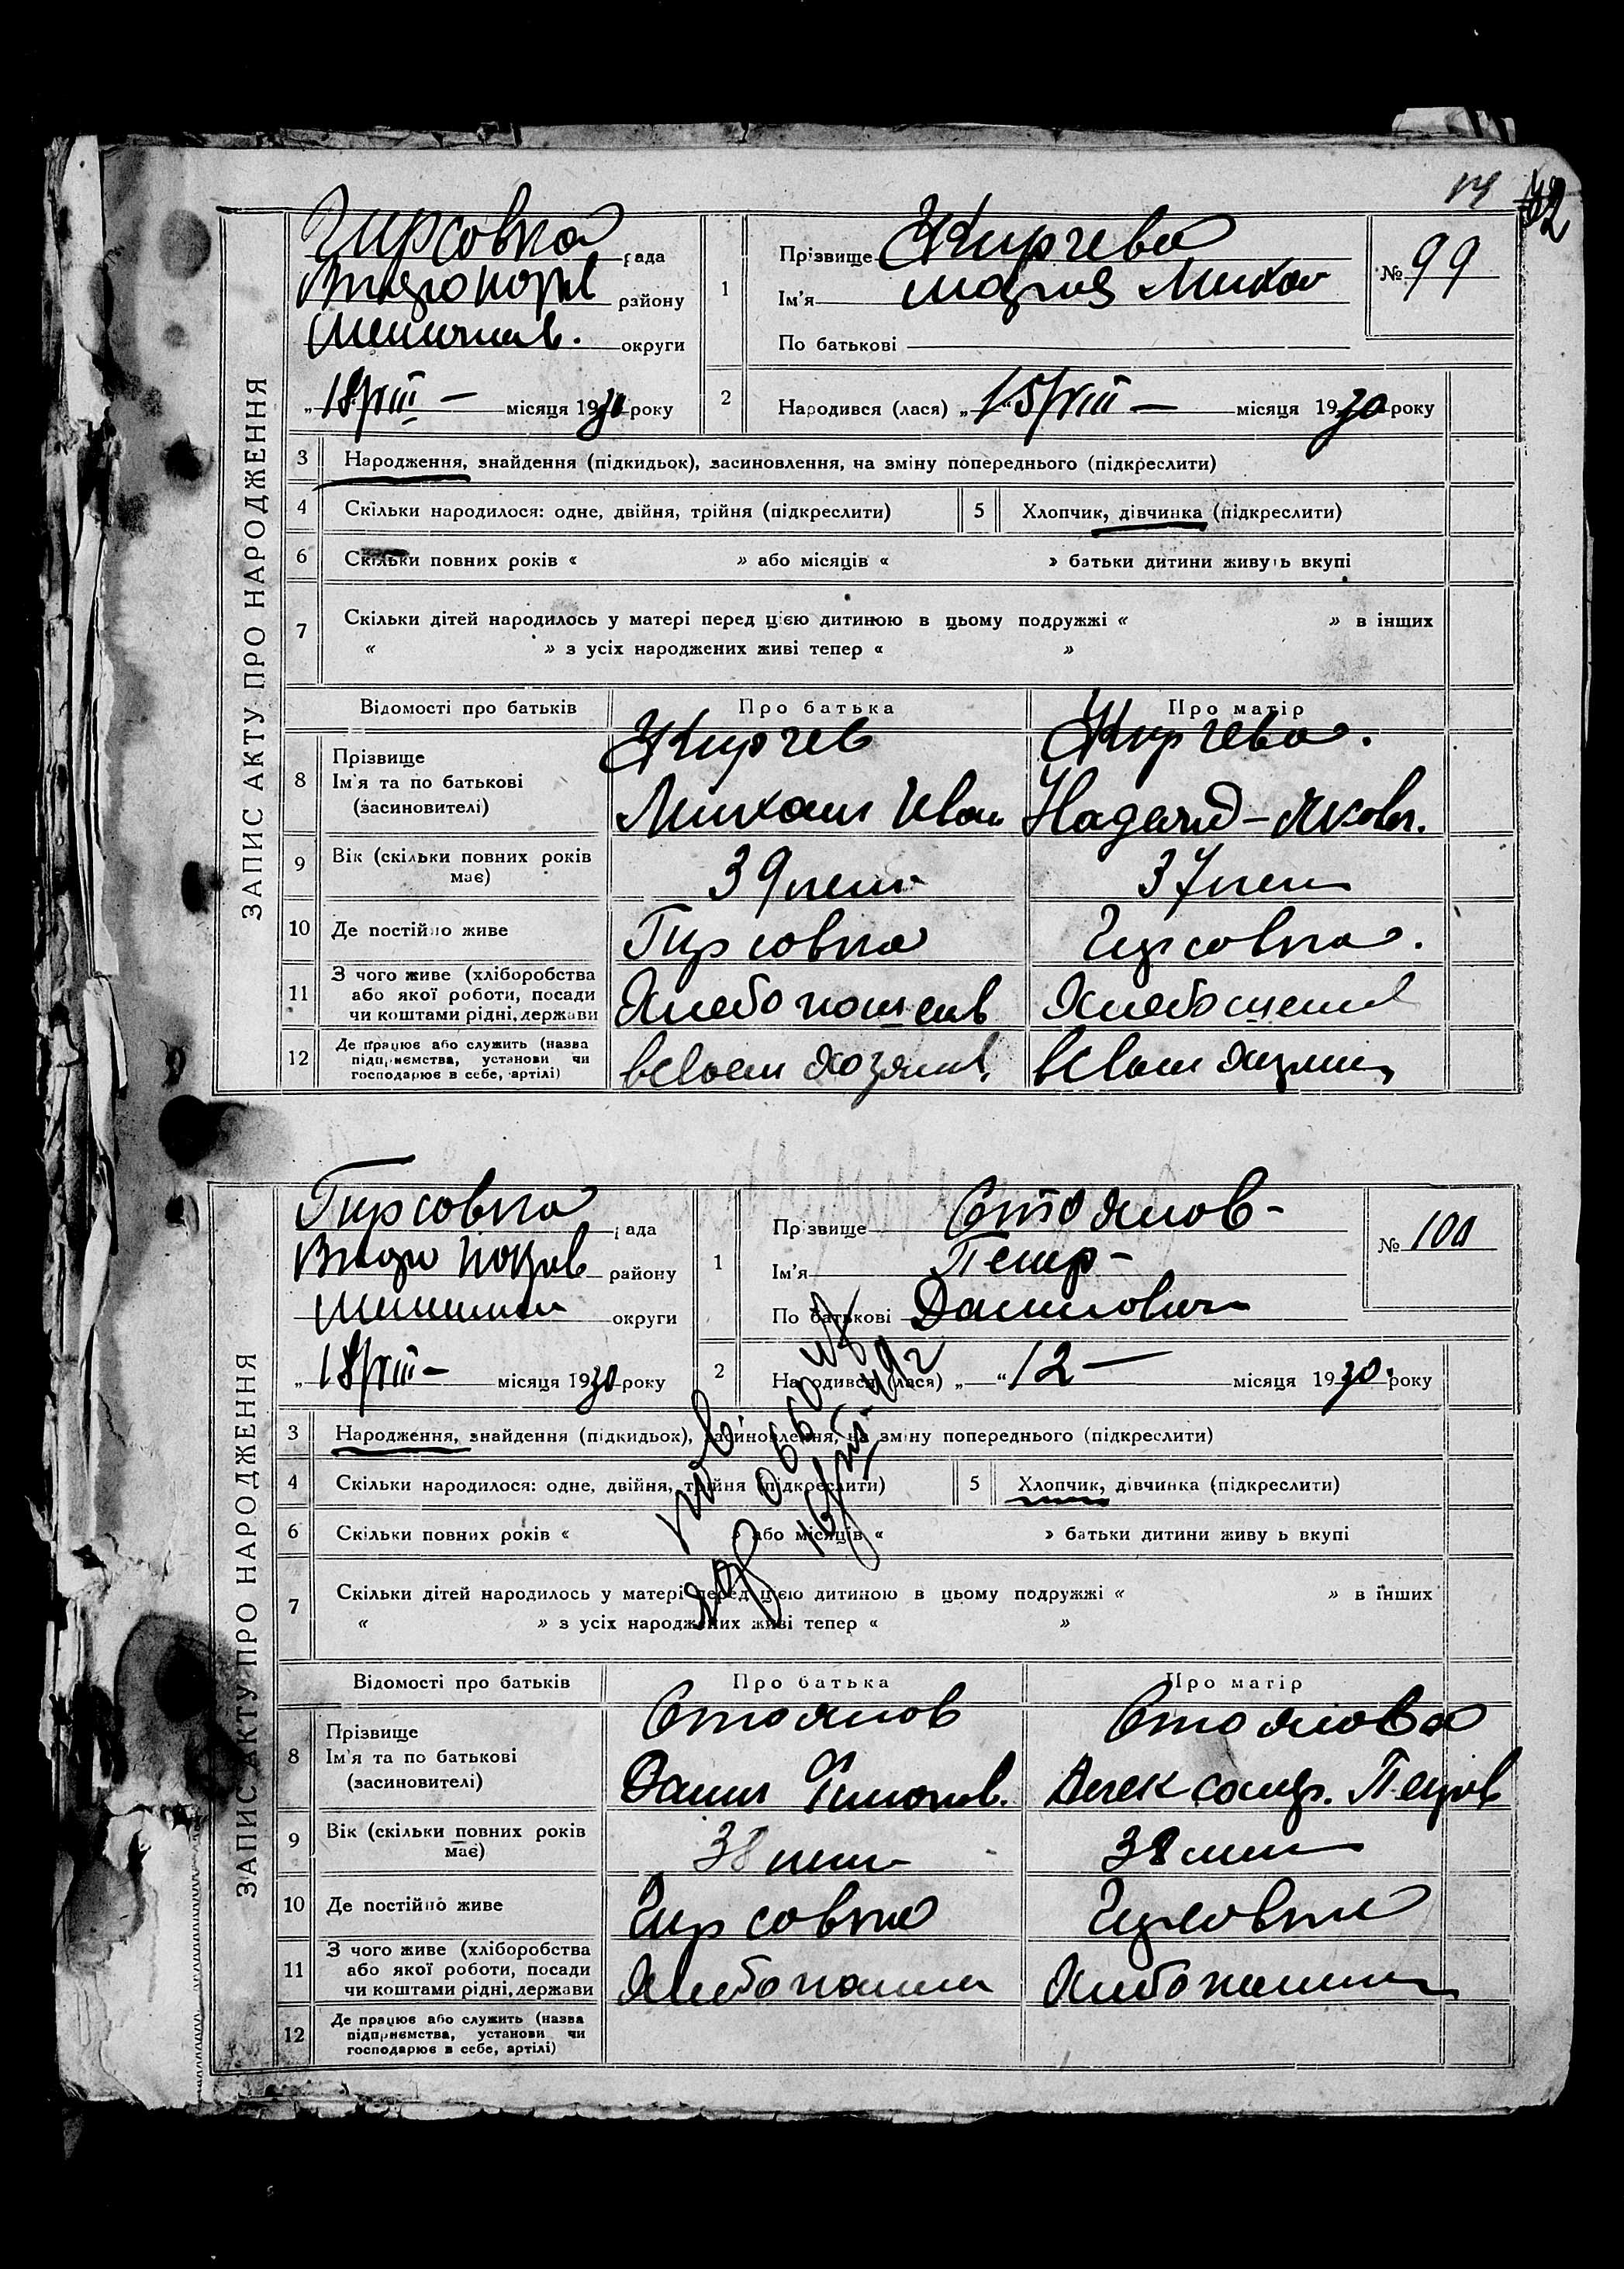 ЗАПИС АКТУ ПРО НАРОДЖЕННЯ
Гирсовка рада
району
округи
„18/VIII — місяця 1930 року
1
Прізвище Киргева
Ім'я Мария Михай
По батькові
№ 99
2 Народився (лася) „15/VIII — місяця 1930 року
3 Народження, знайдення (підкидьок), засиновлення, на зміну попереднього (підкреслити)
4 Скільки народилося: одне, двійня, трійня (підкреслити) 5 Хлопчик, дівчинка (підкреслити)
6 Скільки повних років « » або місяців « » батьки дитини живуть вкупі
7 Скільки дітей народилось у матері перед цією дитиною в цьому подружжі « » в інших
« » з усіх народжених живі тепер « »
Відомості про батьків Про батька Про матір
8 Прізвище
Ім'я та по батькові
(засиновителі)
Киргев Киргева.
Михаил Иван Надежд-Яковл.
9 Вік (скільки повних років має) 39 лет 37 лет
10 Де постійно живе Гирсовка Гирсовка.
11 З чого живе (хліборобства
або якої роботи, посади
чи коштами рідні, держави
12 Де працює або служить (назва
підприємства, установи чи
господарює в себе, артілі)
в своем хозяйс. в своем
ЗАПИС АКТУ ПРО НАРОДЖЕННЯ
Гирсовка рада
району
округи
„18/VIII — місяця 1930 року
1
Прізвище Стоянов -
Ім'я Петр -
По батькові Данилович
№ 100
2 Народився (лася) „ “12 — місяця 1930. року
3 Народження, знайдення (підкидьок), засиновлення, на зміну попереднього (підкреслити)
4 Скільки народилося: одне, двійня, трійня (підкреслити) 5 Хлопчик, дівчинка (підкреслити)
6 Скільки повних років « » або місяців « » батьки дитини живуть вкупі
7 Скільки дітей народилось у матері перед цією дитиною в цьому подружжі « » в інших
« » з усіх народжених живі тепер « »
Відомості про батьків Про батька Про матір
8 Прізвище
Ім'я та по батькові
(засиновителі)
Стоянов Стоянова
Данил Александр. Петров
9 Вік (скільки повних років має) 38 лет 38 лет
10 Де постійно живе Гирсовка Гирсовка
11 З чого живе (хліборобства
або якої роботи, посади
чи коштами рідні, держави
12 Де працює або служить (назва
підприємства, установи чи
господарює в себе, артілі)